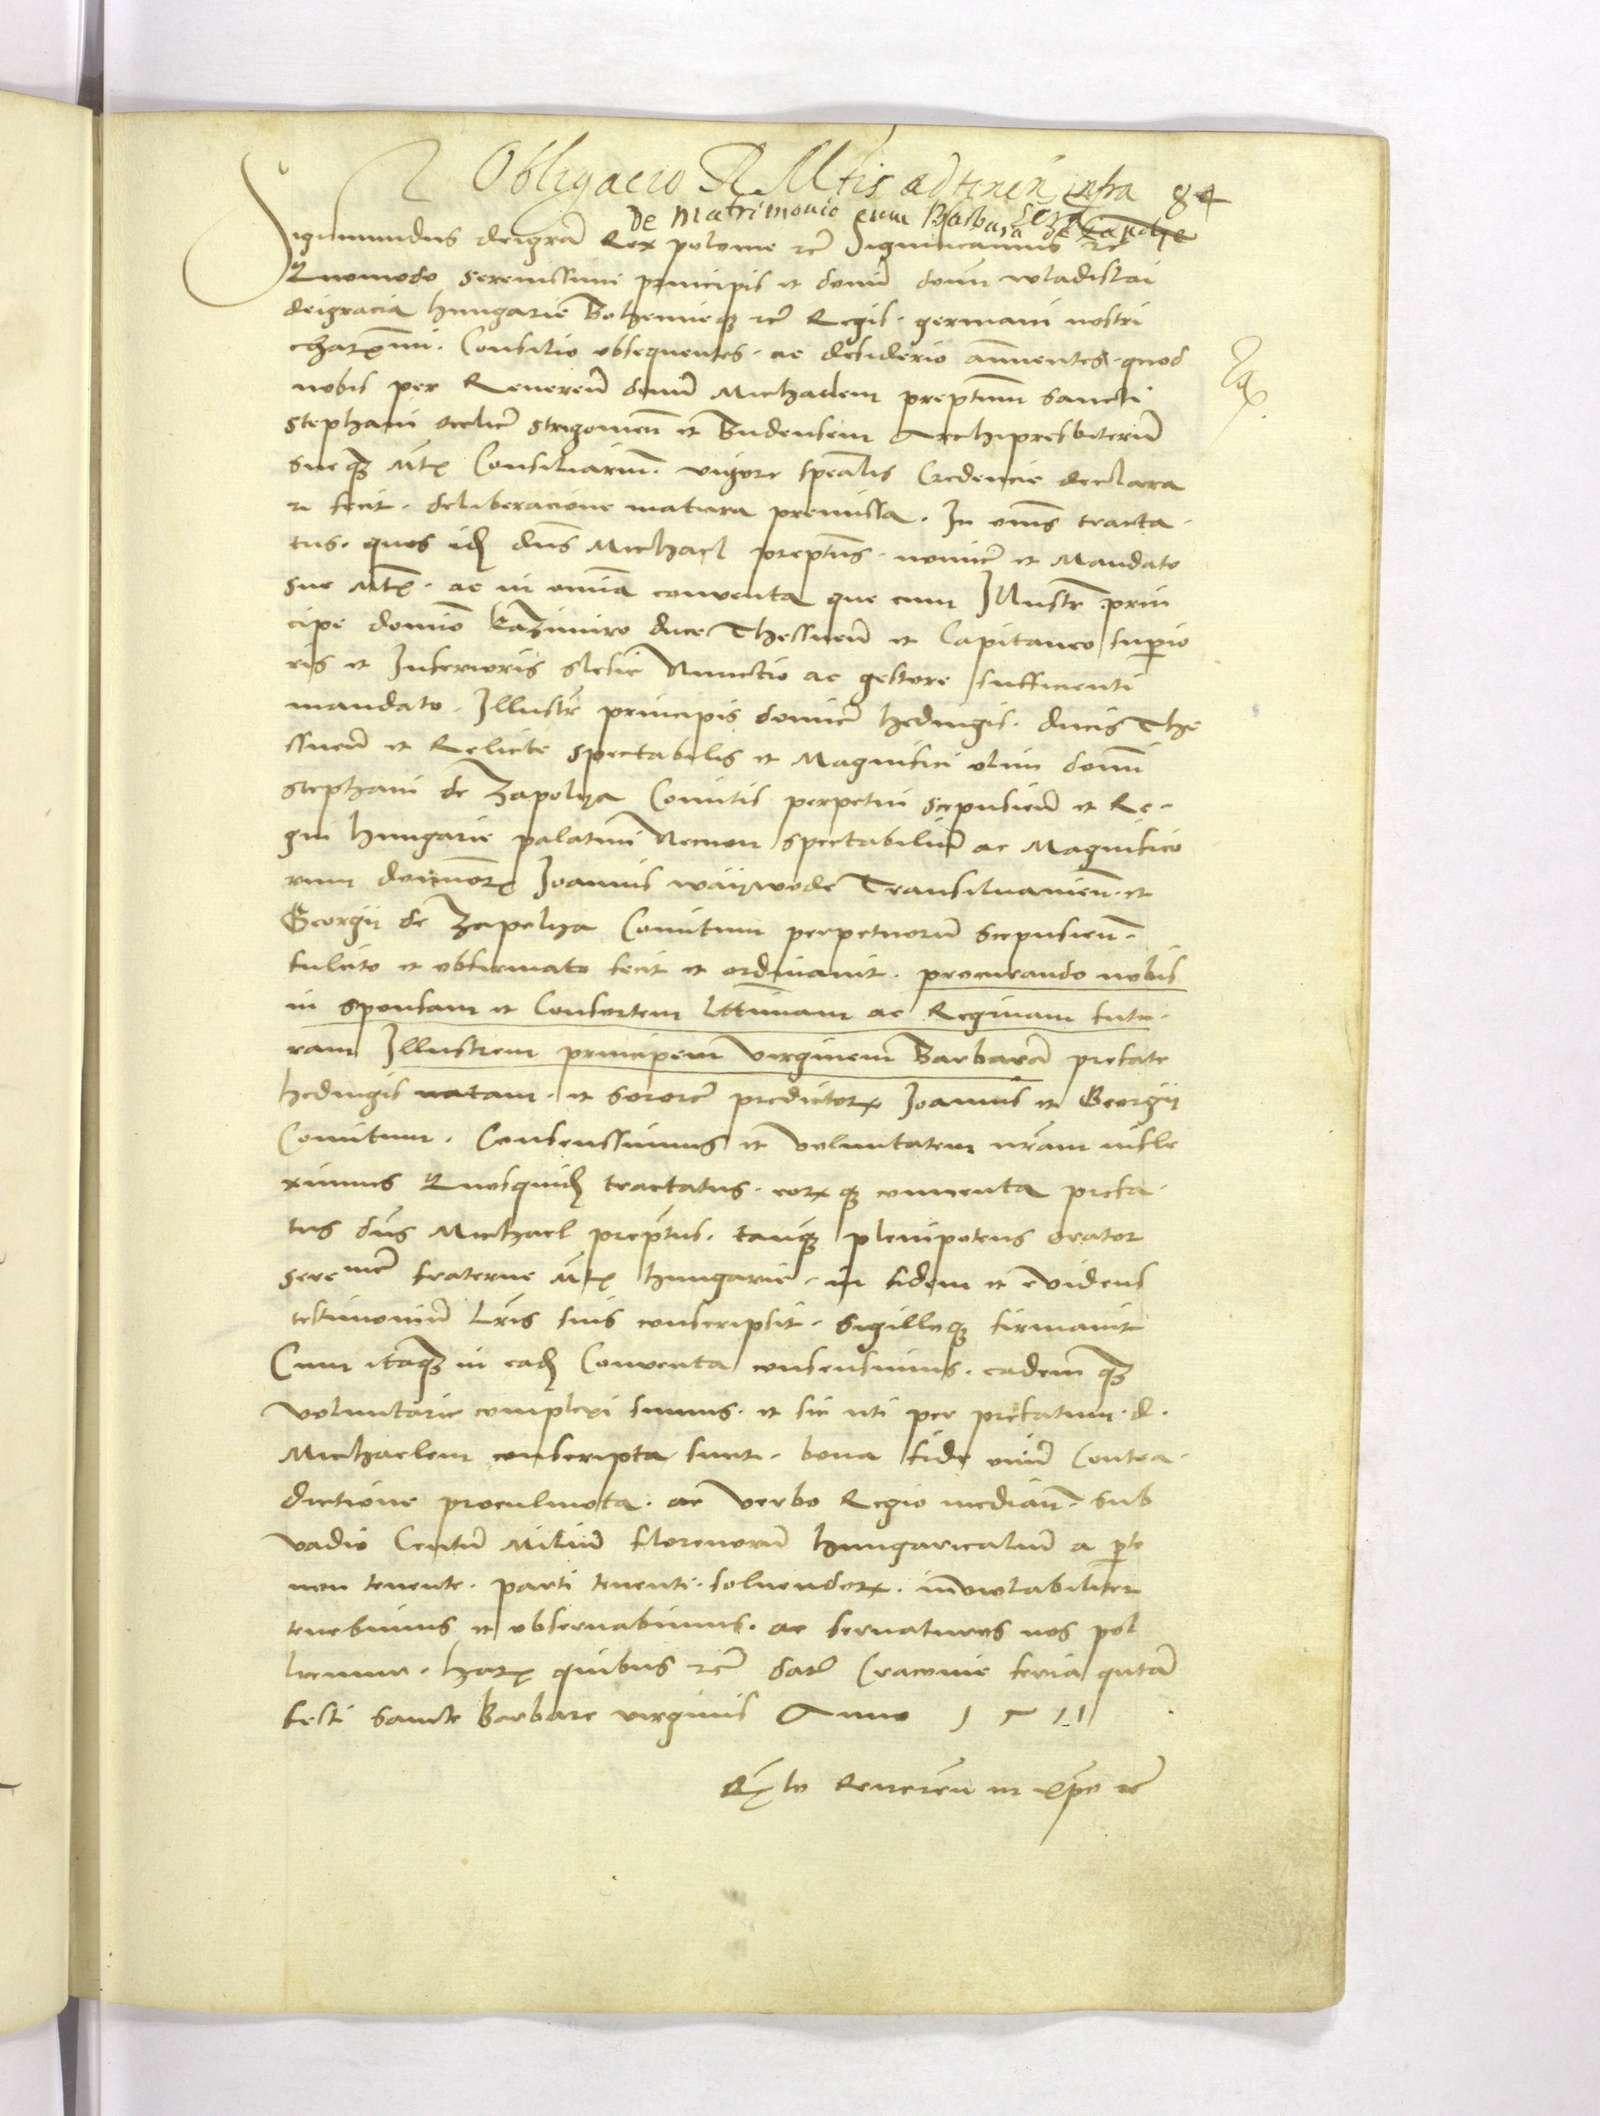 Obligacio R Mtis ad tenen infra 84
De Matrimonio cum Barbara
Sigismundus deigra Rex polonie etc Significamus etc
Quomodo serenissimi principis et domi domi wladislai
deigracia hungarie Bohemieq etc Regis. germani nostri
charmi. Consilio obsequentes. ac desiderio annuentes. quod
nobis per Reverend domi Michaelem prepitum Sancti
Stephani Strigonien et Budensem Archipresbiterum
sueq Mtis Consiliarium. vigore spealis Credencie declara
ri fecit. deliberacione matura premissa. In omes tracta
tus. quos idem dns Michael prepitus. nomine et Mandato
sue Mtis. ac in omnia conventa que cum Illustri prin
cipe domino Kazimiro duce Thessnen et Capitaneo superio
ris et Inferioris slesie Nunctio ac gestore sufficienti
mandato. Illustris principis domine hedvigis. ducis The
ssnen et Relicte spectabilis et Magnifici olim domini
Stephani de Zapolya Comitis perpetui scepusien et Re-
gni hungarie palatini Necnon spectabilium ac Magnifico
rum dominorum Joannis wayvode Transilvanien. et
Georgii de Zapolya Comitum perpetuorum scepusien.
fulcito et obfirmato fecit et ordinavit. procurando nobis
in sponsam et Consortem lttimam ac Reginam futu-
ram Illustrem principem virginem Barbaram prefate
hedvigis natam. et sororem predictorum Joannis et Georgii
Comitum. Consenssimus et voluntatem nram infle
ximus Quosquidem tractatus. eorumq conventa prefa-
tus dns Michael prepitus. tanq plenipotens orator
Serenme fraterne Mtis hungarie. in fidem et evidens
testimonium lris suis conscripsit. Sigilloq firmavit
Cum itaq in eadem Conventa consensimus. eademq
voluntarie complexi sumus. et sic uti per prefatum. d.
Michaelem conscripta sunt. bona fide omi Contra-
dictione proculmota. ac verbo Regio median. sub
vadio Centum Milium florenorum hungaricalium a parte
non tenente. parti tenenti. solvendorum. inviolabiliter
tenebimus et observabimus. ac servaturos nos pol
licemur. harum quibus etc datum Cracovie feria
festi Sancte Barbare virginis Anno 1511
Reveren in xpo etc